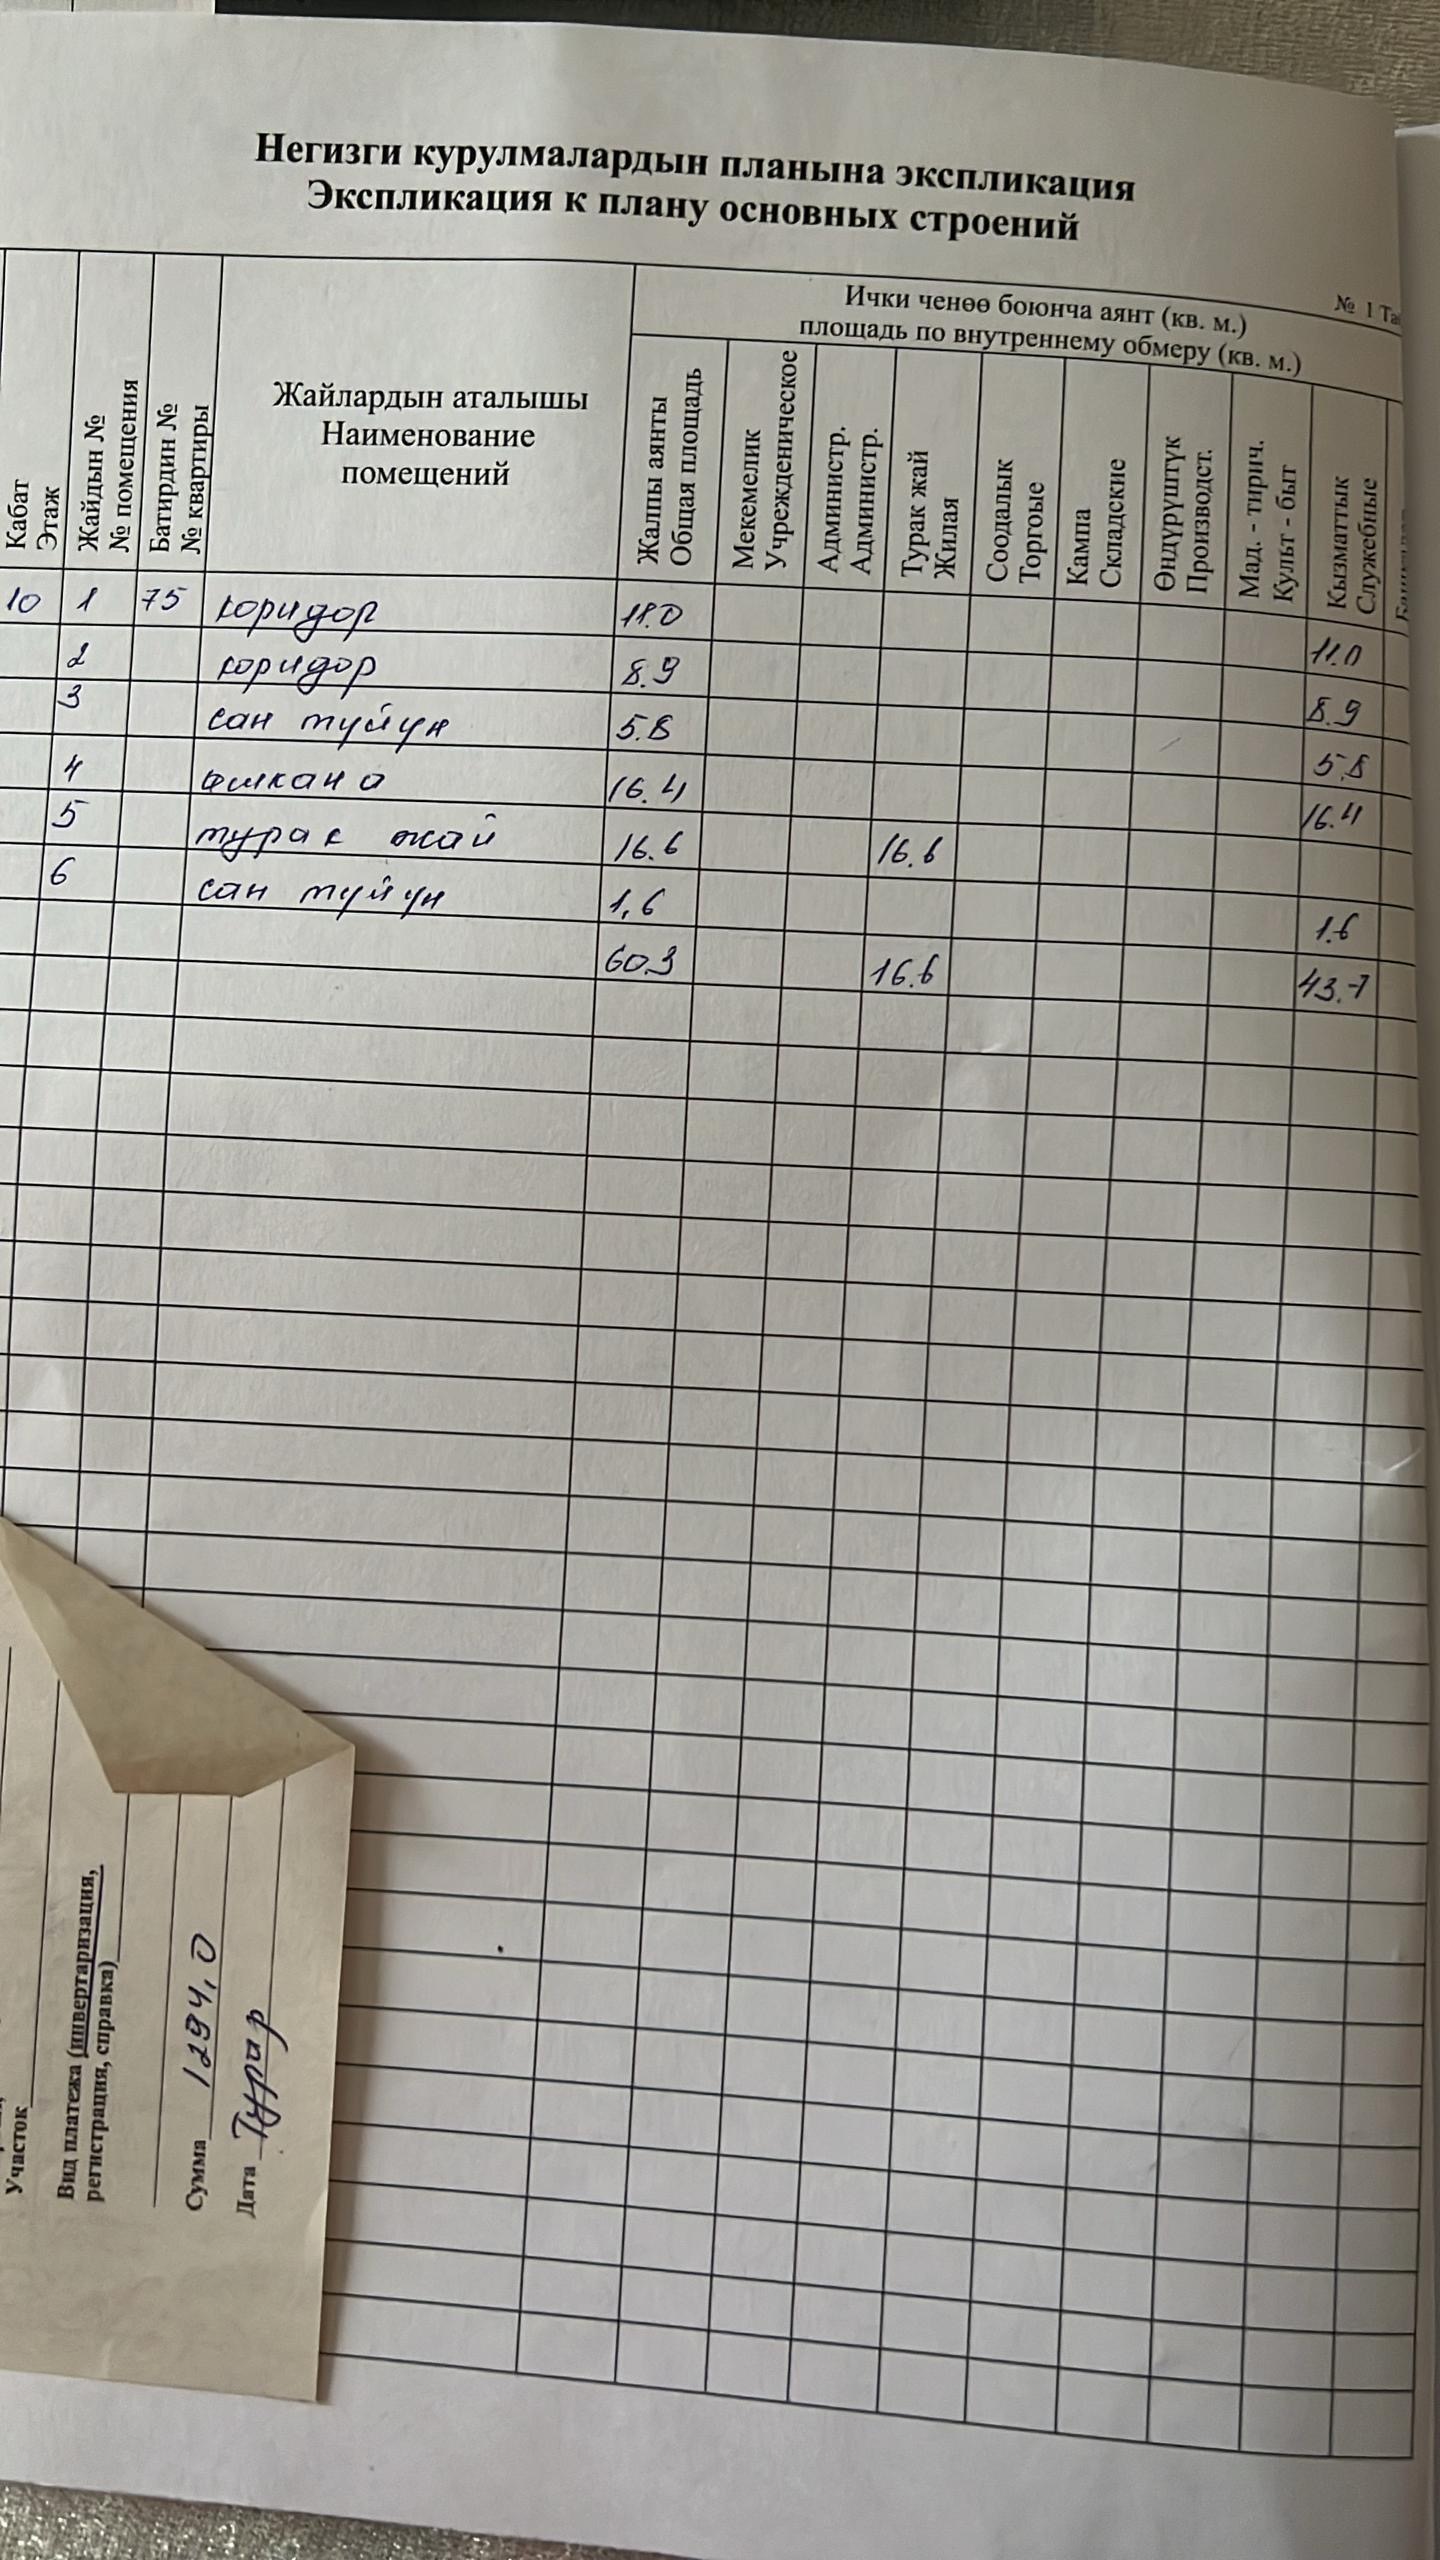 Негизги курулмалардын планына экспликация
Экспликация к плану основных строений
№ 1
Кабат
Этаж
Жайдын №
№ помещения
Батирдин №
№ квартиры
Жайлардын аталышы
Наименование
помещений
Ички ченөө боюнча аянт (кв. м.)
площадь по внутреннему обмеру (кв. м.)
Жалпы аянты
Общая площадь
Мекемелик
Учрежденическое
Администр.
Администр.
Турак жай
Жилая
Соодалык
Торгоые
Кампа
Складские
Өндүрүштүк
Производст.
Мад. - тирич.
Культ - быт
Кызматтык
Служебные
10 1 75 коридор 11.0 11.0
2 коридор 8.9 8.9
3 сан түйүн 5.8 5.8
4 ашкана 16.4 16.4
5 турак жай 16.6 16.6
6 сан түйүн 1,6 1.6
60.3 16.6 43.7
Участок
Вид платежа (инвертаризация,
регистрация, справка)
Сумма 1294,0
Дата